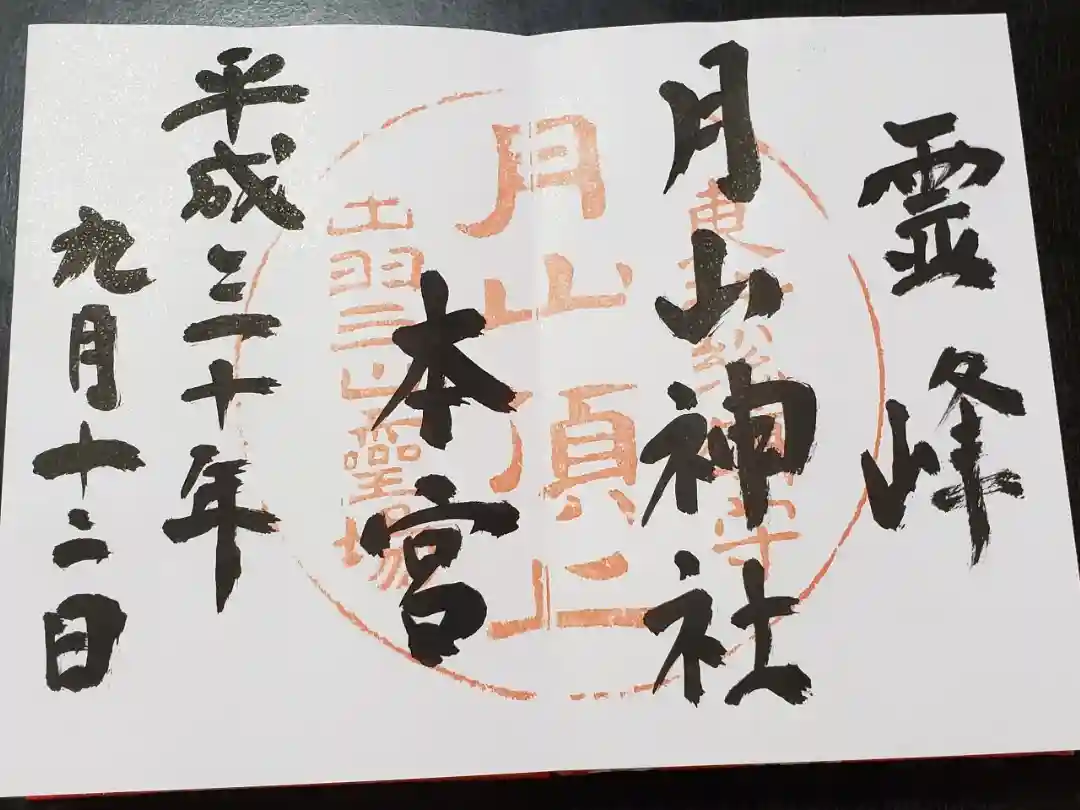 霊峰
月山神社
本宮
平成三十年
九月十二日
東北総鎮守
月山頂上
出羽三山靈場